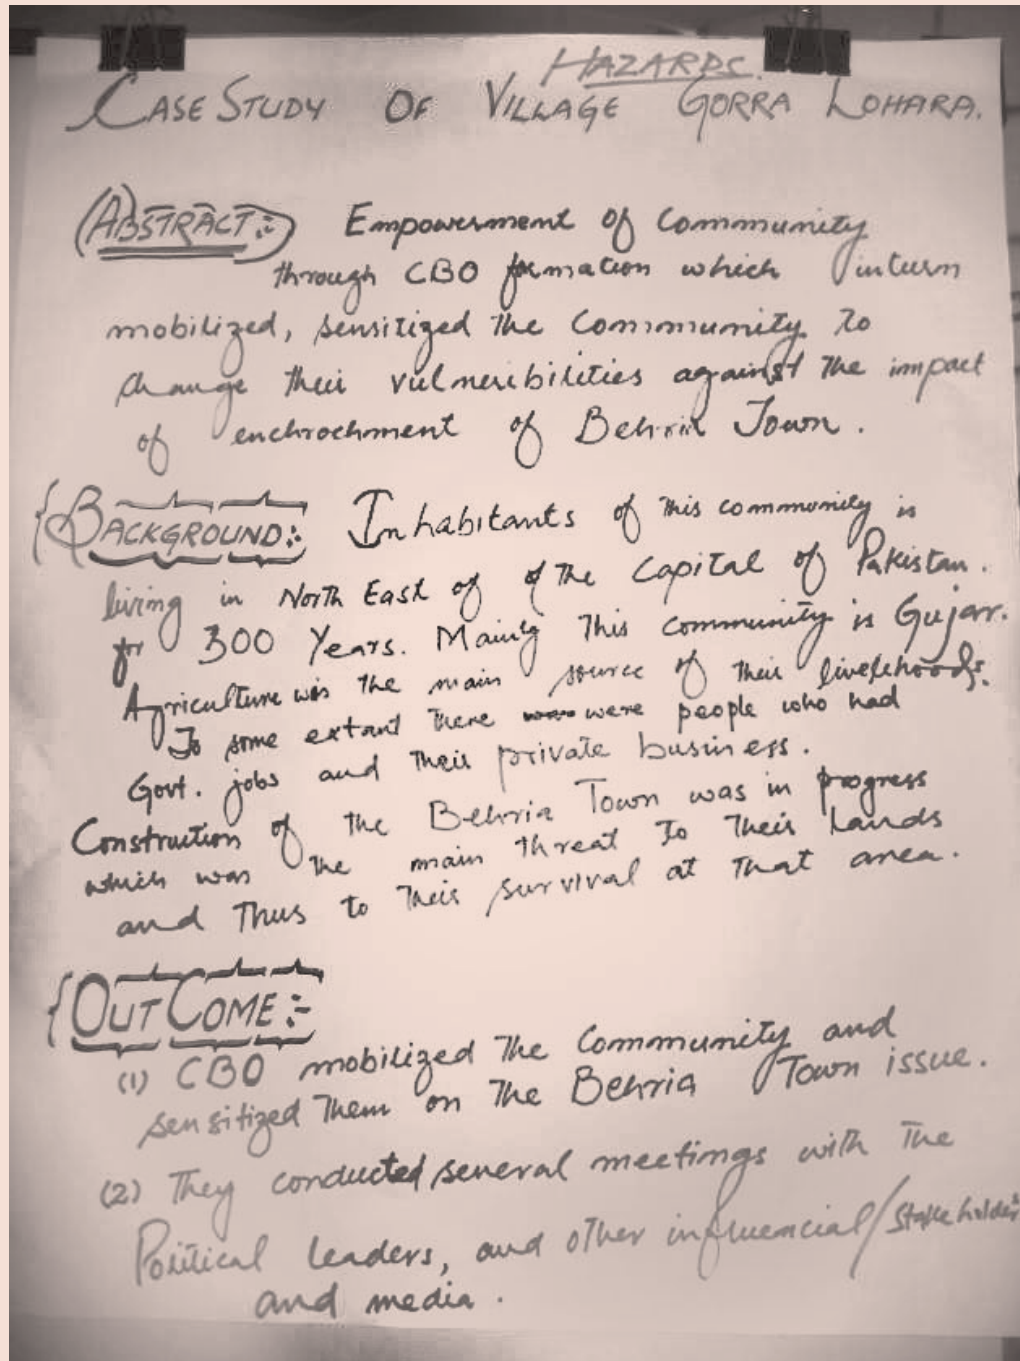 HAZARDS.
CASE STUDY OF VILLAGE GORRA LOHARA.
(ABSTRACT:-) Empowerment of Community
through CBO formation which inturn
mobilized, sensitized the Community to
change their vulneribilities against the impact
of enchrochment of Behria Town.
{BACKGROUND:- Inhabitants of this community is
living in North East of of the Capital of Pakistan.
for 300 Years. Mainly This community is Gujarr.
Agriculture was the main source of their livelihoods.
To some extant there were people who had
Govt. jobs and their private business.
Construction of the Behria Town was in progress
which was the main threat to Their Lands
and Thus to Their survival at That area.
{OUT COME:-
(1) CBO mobilized The Community and
sensitized Them on The Behria Town issue.
(2) They conducted several meetings with The
Political leaders, and other influencial/Stakeholders
and media.